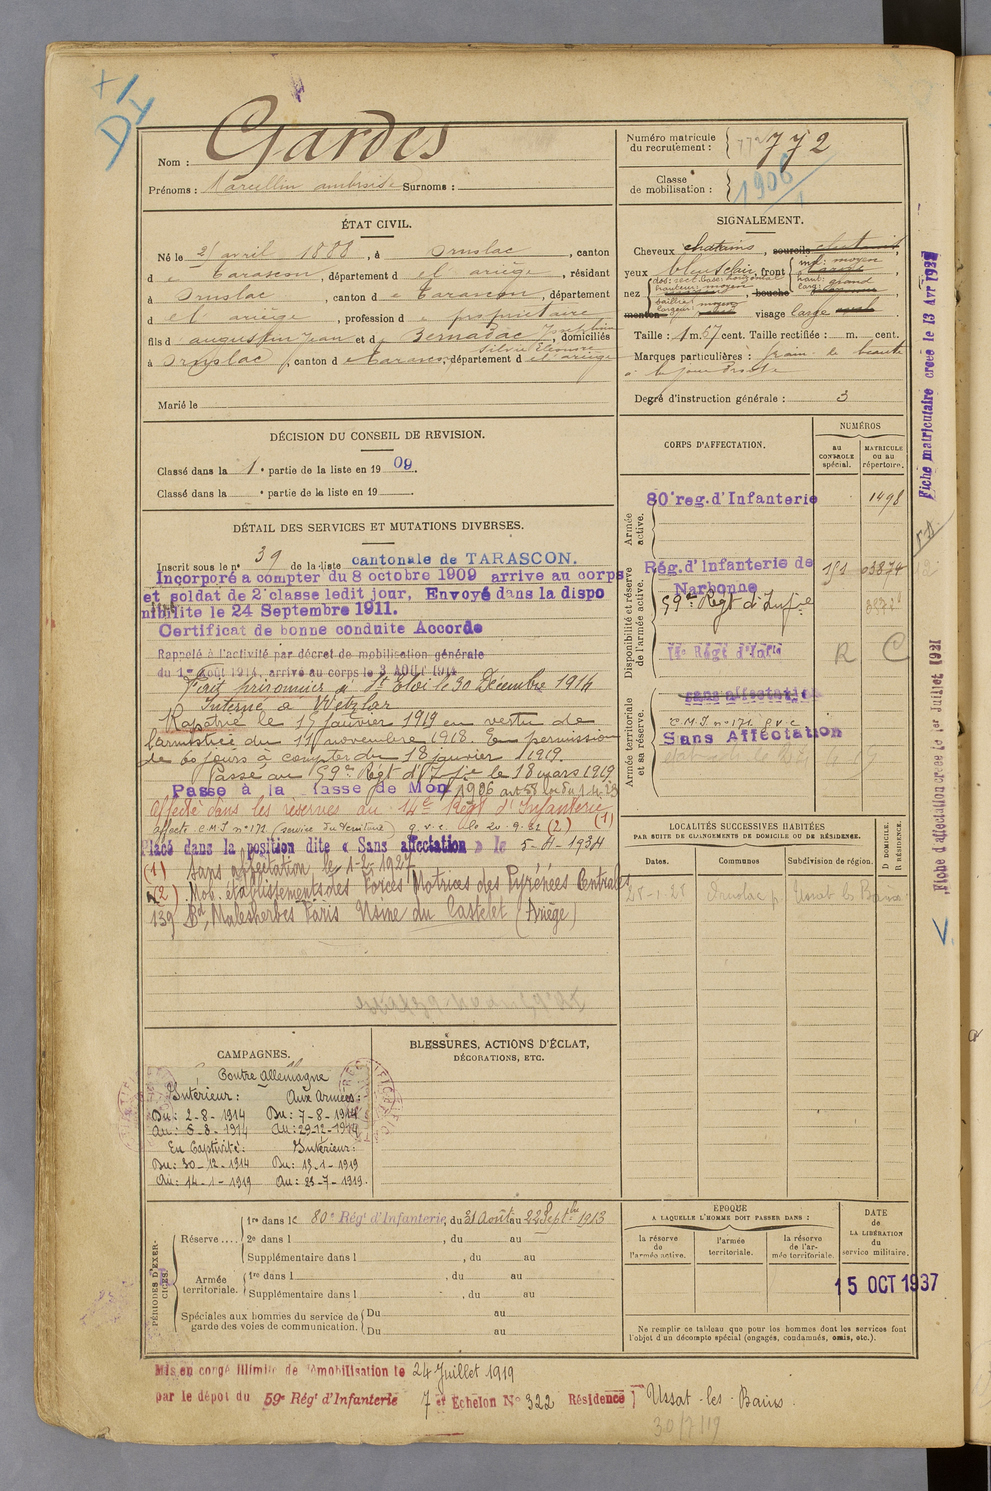 Gardes
Nom :
Prénoms : Marcellin ambroise Surnoms :
Numéro matricule du recrutement : 772
Classe de mobilisation : 1906
ÉTAT CIVIL.
Né le 21 avril 1888, à Ornolac, canton
de Tarascon, département de l ariège, résidant
à Ornolac, canton de Tarascon, département
de l ariège, profession de propriétaire
fils d augustin Jean et de Bernadac Joséphine
Silvie Eléonore, domiciliés
à Ornolac, canton de Tarascon, département de l ariège
Marié le
SIGNALEMENT.
Cheveux chatains, sourcils chatains
yeux bleu clair, front inc: moyen
haut: grand
nez dos: sect. base: horizontal
hauteur: moyen, bouche
saillie: moyen
largeur:
menton visage large
Taille : 1 m. 57 cent. Taille rectifiée : m. cent.
Marques particulières : grain de beauté
à la joue droite
Degré d'instruction générale : 3
DÉCISION DU CONSEIL DE REVISION.
Classé dans la 1e partie de la liste en 1909.
Classé dans la e partie de la liste en 19
DÉTAIL DES SERVICES ET MUTATIONS DIVERSES.
Inscrit sous le n° 39 de la liste cantonale de TARASCON.
Incorporé a compter du 8 octobre 1909 arrive au corps
et soldat de 2e classe ledit jour, Envoyé dans la dispo
nibilite le 24 Septembre 1911.
Certificat de bonne conduite Accordé
Rappelé à l'activité par décret de mobilisation générale
du 1er Août 1914, arrivé au corps le 3 AOUT 1914
Fait prisonnier à St Eloi le 30 Décembre 1914
Interné à Wetzlar
Rapatrié le 15 janvier 1919 en vertu de
l'armistice du 11 novembre 1918. En permission
de 60 jours à compter du 18 janvier 1919.
Passé au 59e Régt d'Infie le 18 mars 1919
Passe à la classe de Mon 1906 art 58 loi du 1.4.23
Affecté dans les réserves du 14e Régt d'Infanterie (1)
affecté C.M.I n°172 (service du territoire) g.v.c. le 20.9.32 (2)
Placé dans la position dite « Sans affectation » le 5-4-1934
(1) Sans affectation le 1-2-1927
(2) Mob. établissements des Forces Motrices des Pyrénées Centrales
139 Bd Malesherbes Paris Usine du Castelet (Ariège)
CORPS D'AFFECTATION.
NUMÉROS
AU CONTROLE spécial.
MATRICULE OU AU répertoire.
Armée active.
80e reg. d'Infanterie 1498
Disponibilité et réserve de l'armée active.
Rég. d'Infanterie de Narbonne 03874
59e Régt d'Infie
14e Régt d'Infie R C
Armée territoriale et sa réserve.
sans affectation
C.M.I n°171. g.v.c
Sans Affectation
LOCALITÉS SUCCESSIVES HABITÉES
PAR SUITE DE CHANGEMENTS DE DOMICILE OU DE RÉSIDENCE.
Dates. Communes Subdivision de région. D DOMICILE. R RÉSIDENCE.
Ussat les Bains
CAMPAGNES.
Contre Allemagne
Intérieur : Aux Armées :
Du : 2-8-1914 Du : 7-8-1914
Au : 6-8-1914 Au : 29-12-1914
En Captivité : Intérieur :
Du : 30-12-1914 Du : 15-1-1919
Au : 14-1-1919 Au : 23-7-1919.
BLESSURES, ACTIONS D'ÉCLAT,
DÉCORATIONS, ETC.
PÉRIODES D'EXERCICES.
Réserve .... 1re dans le 80e Régt d'Infanterie, du 31 Août au 22 Septbre 1913
2e dans l , du au
Supplémentaire dans l , du au
Armée territoriale. 1re dans l , du au
Supplémentaire dans l , du au
Spéciales aux hommes du service de garde des voies de communication. Du au
Du au
EPOQUE
A LAQUELLE L'HOMME DOIT PASSER DANS :
la réserve de l'armée active.
l'armée territoriale.
la réserve de l'armée territoriale.
DATE de LA LIBÉRATION du service militaire.
15 OCT 1937
Ne remplir ce tableau que pour les hommes dont les services font
l'objet d'un décompte spécial (engagés, condamnés, omis, etc.).
Mis en congé illimité de démobilisation le 24 Juillet 1919
par le dépôt du 59e Régt d'Infanterie 7e Echelon N° 322 Résidence Ussat-les-Bains.
30/7/19
Fiche matriculaire créée le 13 Avr 1937
Fiche d'affectation créée le 1er Juillet 1931